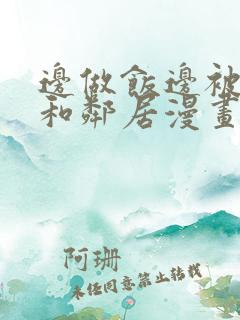 邊做飯邊被
和鄰居漫畫
阿珊
未經同意禁止轉載